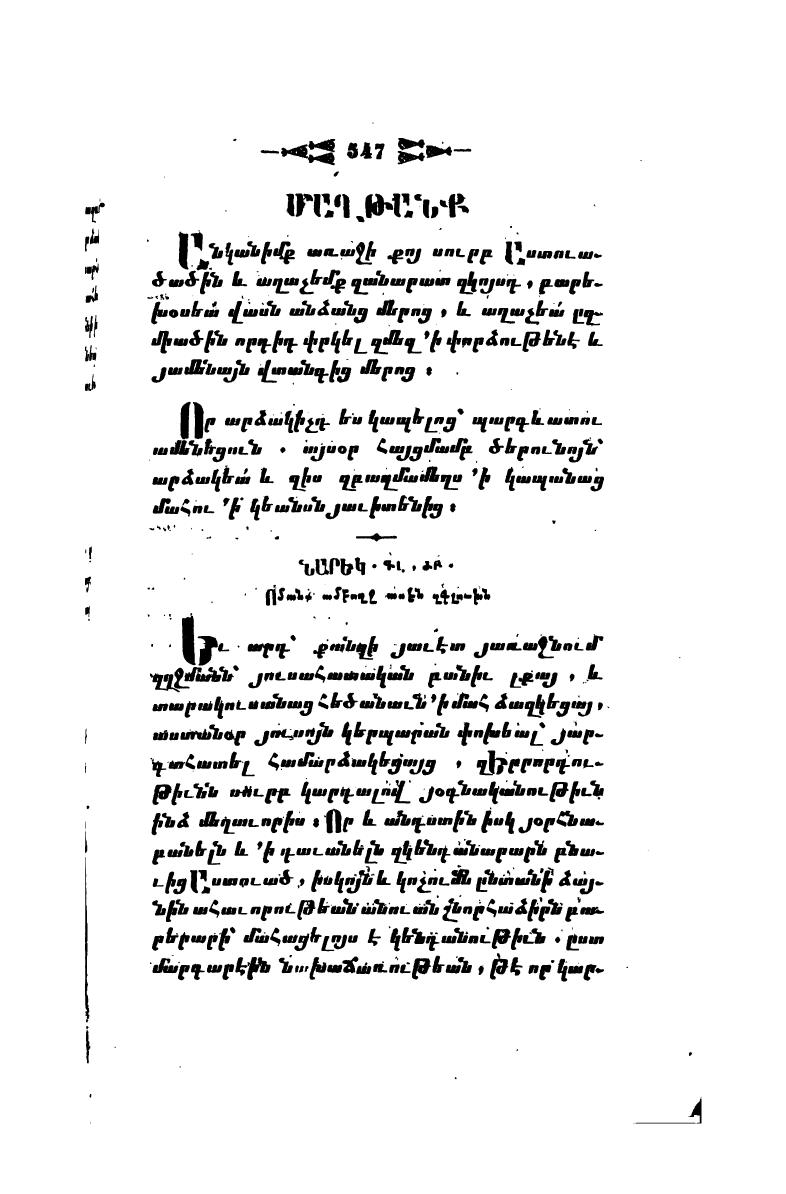 547
ՄԱՂԹԱՆՔ
Անկանիմք առաջի քոյ սուրբ Աստուա-
ծածին և աղաչեմք զանարատ զկոյսդ, բարե-
խօսեա՛ վասն անձանց մերոց, և աղաչեա՛ ըզ-
միածին որդիդ փրկել զմեզ ՚ի փորձութենէ և
յամենայն վտանգից մերոց ։
Որ արձակիչդ ես կապելոց՝ պարգևատու
ամենեցուն . այսօր Հայցմամբ ծերունոյն՝
արձակեա՛ և զիս զբազմամեղս ՚ի կապանաց
մահու ՚ի կեանսն յաւիտենից ։
ՆԱՐԵԿ . ԳԼ . ԺԲ .
Ոմանք ամբողջ ասեն զգլուխն
Եւ արդ՝ քանզի յաւէտ յառաջնում
զղջմանն՝ յուսահատական բանիւ լքայ, և
տարակուսանաց հեծանաւն ՚ի մահ ձաղկեցայ,
աստանօր յուսոյն կերպարան փոխեալ՝ յար-
գահատել համարձակեցայց, զԵրրորդու-
թիւնն սուրբ կարդալով յօգնականութիւն
ինձ մեղաւորիս ։ Որ և անդստին իսկ յօրհնա-
բանելն և ՚ի դաւանելն զկենդանարարն բնա-
ւից Աստուած, իսկոյն և կոչումն ընտանի ձայ-
նին ահաւորութեան անուան շնորհաձիրն բա-
րերարի՝ մահացելոյս է կենդանութիւն . ըստ
մարգարէին նախաճառութեան, թէ որ կար-